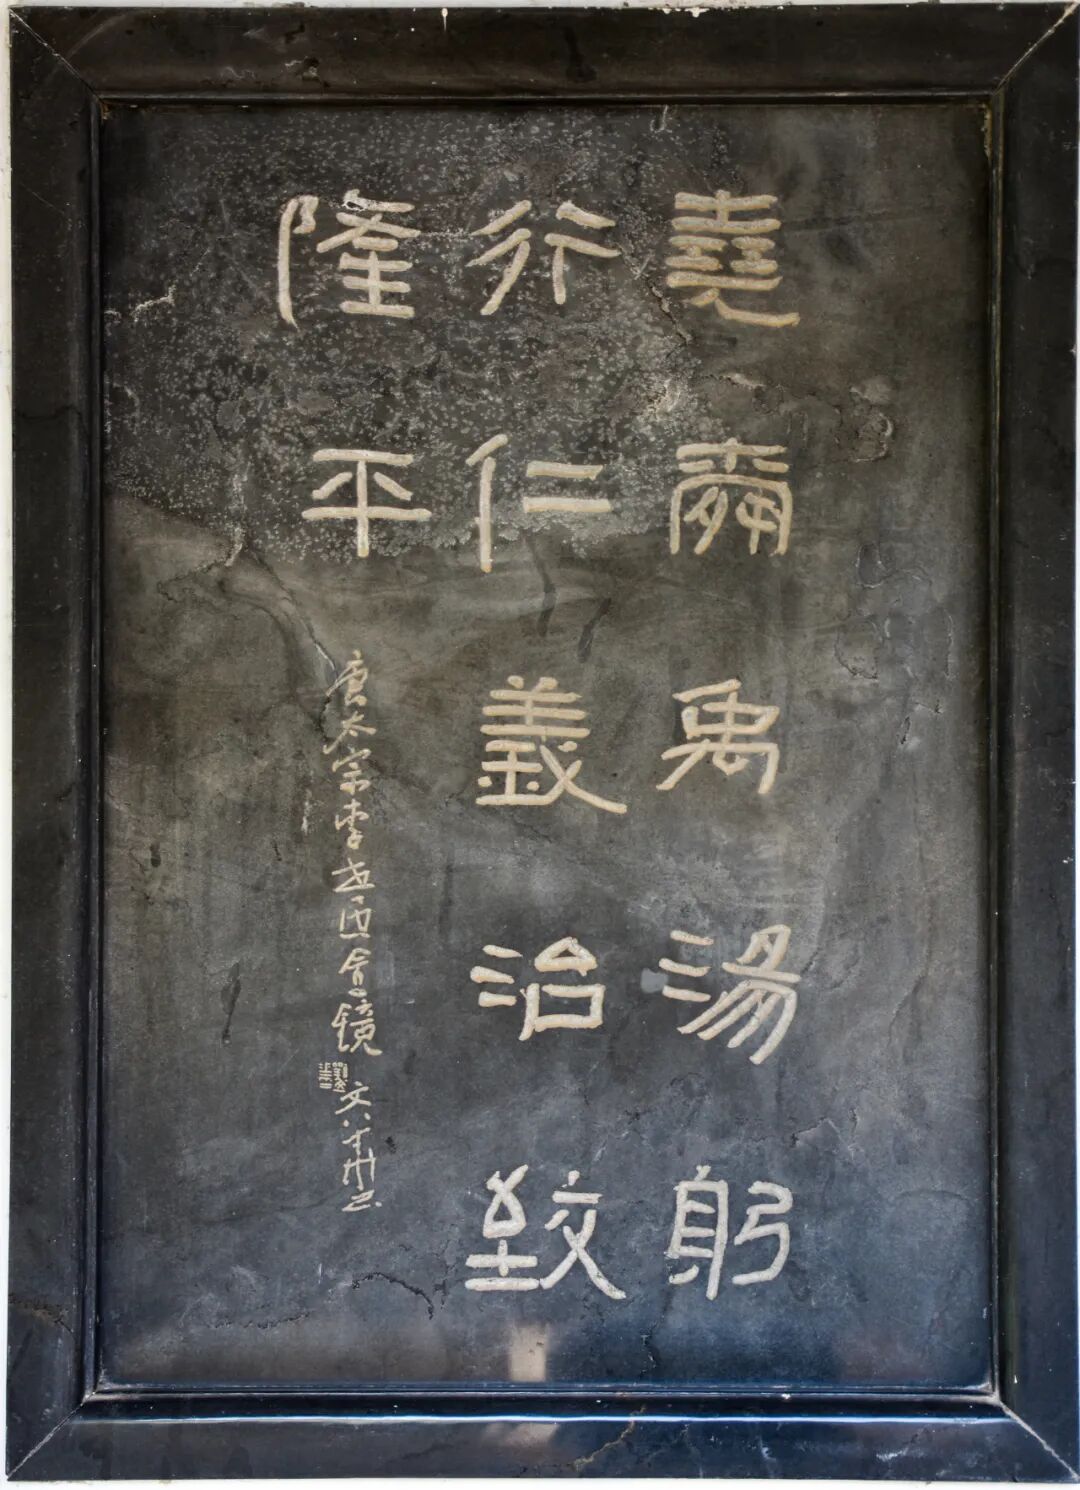 堯舜禹湯躬
行仁義治致
隆平
唐太宗李世民金鏡